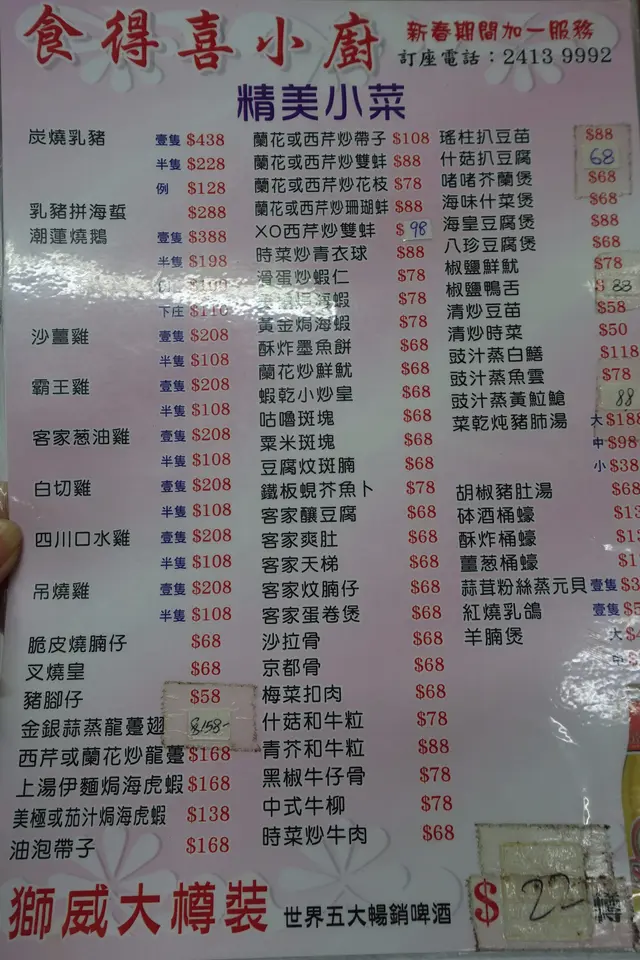 食得喜小廚
新春期間加一服務
訂座電話：2413 9992
精美小菜
炭燒乳豬 壹隻 $438
半隻 $228
例 $128
乳豬拼海蜇 $288
潮蓮燒鵝 壹隻 $388
半隻 $198
下庄 $110
沙薑雞 壹隻 $208
半隻 $108
霸王雞 壹隻 $208
半隻 $108
客家葱油雞 壹隻 $208
半隻 $108
白切雞 壹隻 $208
半隻 $108
四川口水雞 壹隻 $208
半隻 $108
吊燒雞 壹隻 $208
半隻 $108
脆皮燒腩仔 $68
叉燒皇 $68
豬腳仔 $58
金銀蒜蒸龍躉翅 $158-
西芹或蘭花炒龍躉 $168
上湯伊麵焗海虎蝦 $168
美極或茄汁焗海虎蝦 $138
油泡帶子 $168
蘭花或西芹炒帶子 $108
蘭花或西芹炒雙蚌 $88
蘭花或西芹炒花枝 $78
蘭花或西芹炒珊瑚蚌 $88
XO西芹炒雙蚌 $98
時菜炒青衣球 $88
滑蛋炒蝦仁 $78
焗海蝦 $78
黃金焗海蝦 $78
酥炸墨魚餅 $68
蘭花炒鮮魷 $68
蝦乾小炒皇 $68
咕嚕斑塊 $68
粟米斑塊 $68
豆腐炆斑腩 $68
鐵板蜆芥魚卜 $78
客家釀豆腐 $68
客家爽肚 $68
客家天梯 $68
客家炆腩仔 $68
客家蛋卷煲 $68
沙拉骨 $68
京都骨 $68
梅菜扣肉 $68
什菇和牛粒 $78
青芥和牛粒 $88
黑椒牛仔骨 $78
中式牛柳 $78
時菜炒牛肉 $68
瑤柱扒豆苗 $88
什菇扒豆腐 68
啫啫芥蘭煲 $68
海味什菜煲 $68
海皇豆腐煲 $88
八珍豆腐煲 $68
椒鹽鮮魷 $78
椒鹽鴨舌 $88
清炒豆苗 $58
清炒時菜 $50
豉汁蒸白鱔 $118
豉汁蒸魚雲 $78
豉汁蒸黃鮎鎗 88
菜乾炖豬肺湯 大 $188
中 $98
小 $38
胡椒豬肚湯 $68
砵酒桶蠔
酥炸桶蠔
薑葱桶蠔
蒜茸粉絲蒸元貝 壹隻
紅燒乳鴿 壹隻
羊腩煲 大
獅威大樽裝 世界五大暢銷啤酒 $ 22-